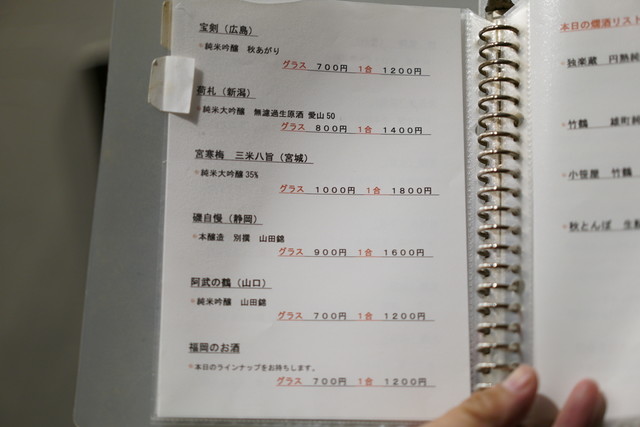 宝剣（広島）
*純米吟醸 秋あがり
グラス 700円 1合 1200円
荷札（新潟）
*純米大吟醸 無濾過生原酒 愛山50
グラス 800円 1合 1400円
宮寒梅 三米八旨（宮城）
*純米大吟醸35%
グラス 1000円 1合 1800円
磯自慢（静岡）
*本醸造 別撰 山田錦
グラス 900円 1合 1600円
阿武の鶴（山口）
*純米吟醸 山田錦
グラス 700円 1合 1200円
福岡のお酒
*本日のラインナップをお持ちします。
グラス 700円 1合 1200円
本日の燗酒リスト
*独楽蔵 円熟純
*竹鶴 雄町純
*小笹屋 竹鶴
*秋とんぼ 生酛